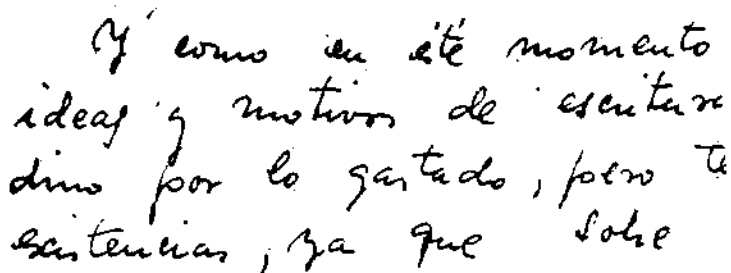 Y como en éste momento
ideas y motivos de escritura
dino por lo gastado, pero te
existencias, ya que sobre